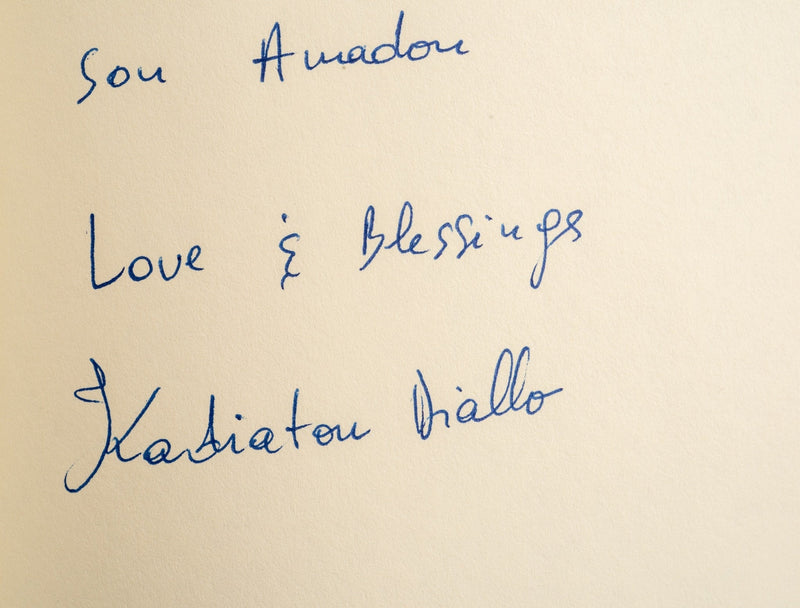 Son Amadou
Love & Blessings
Kadiatou Diallo